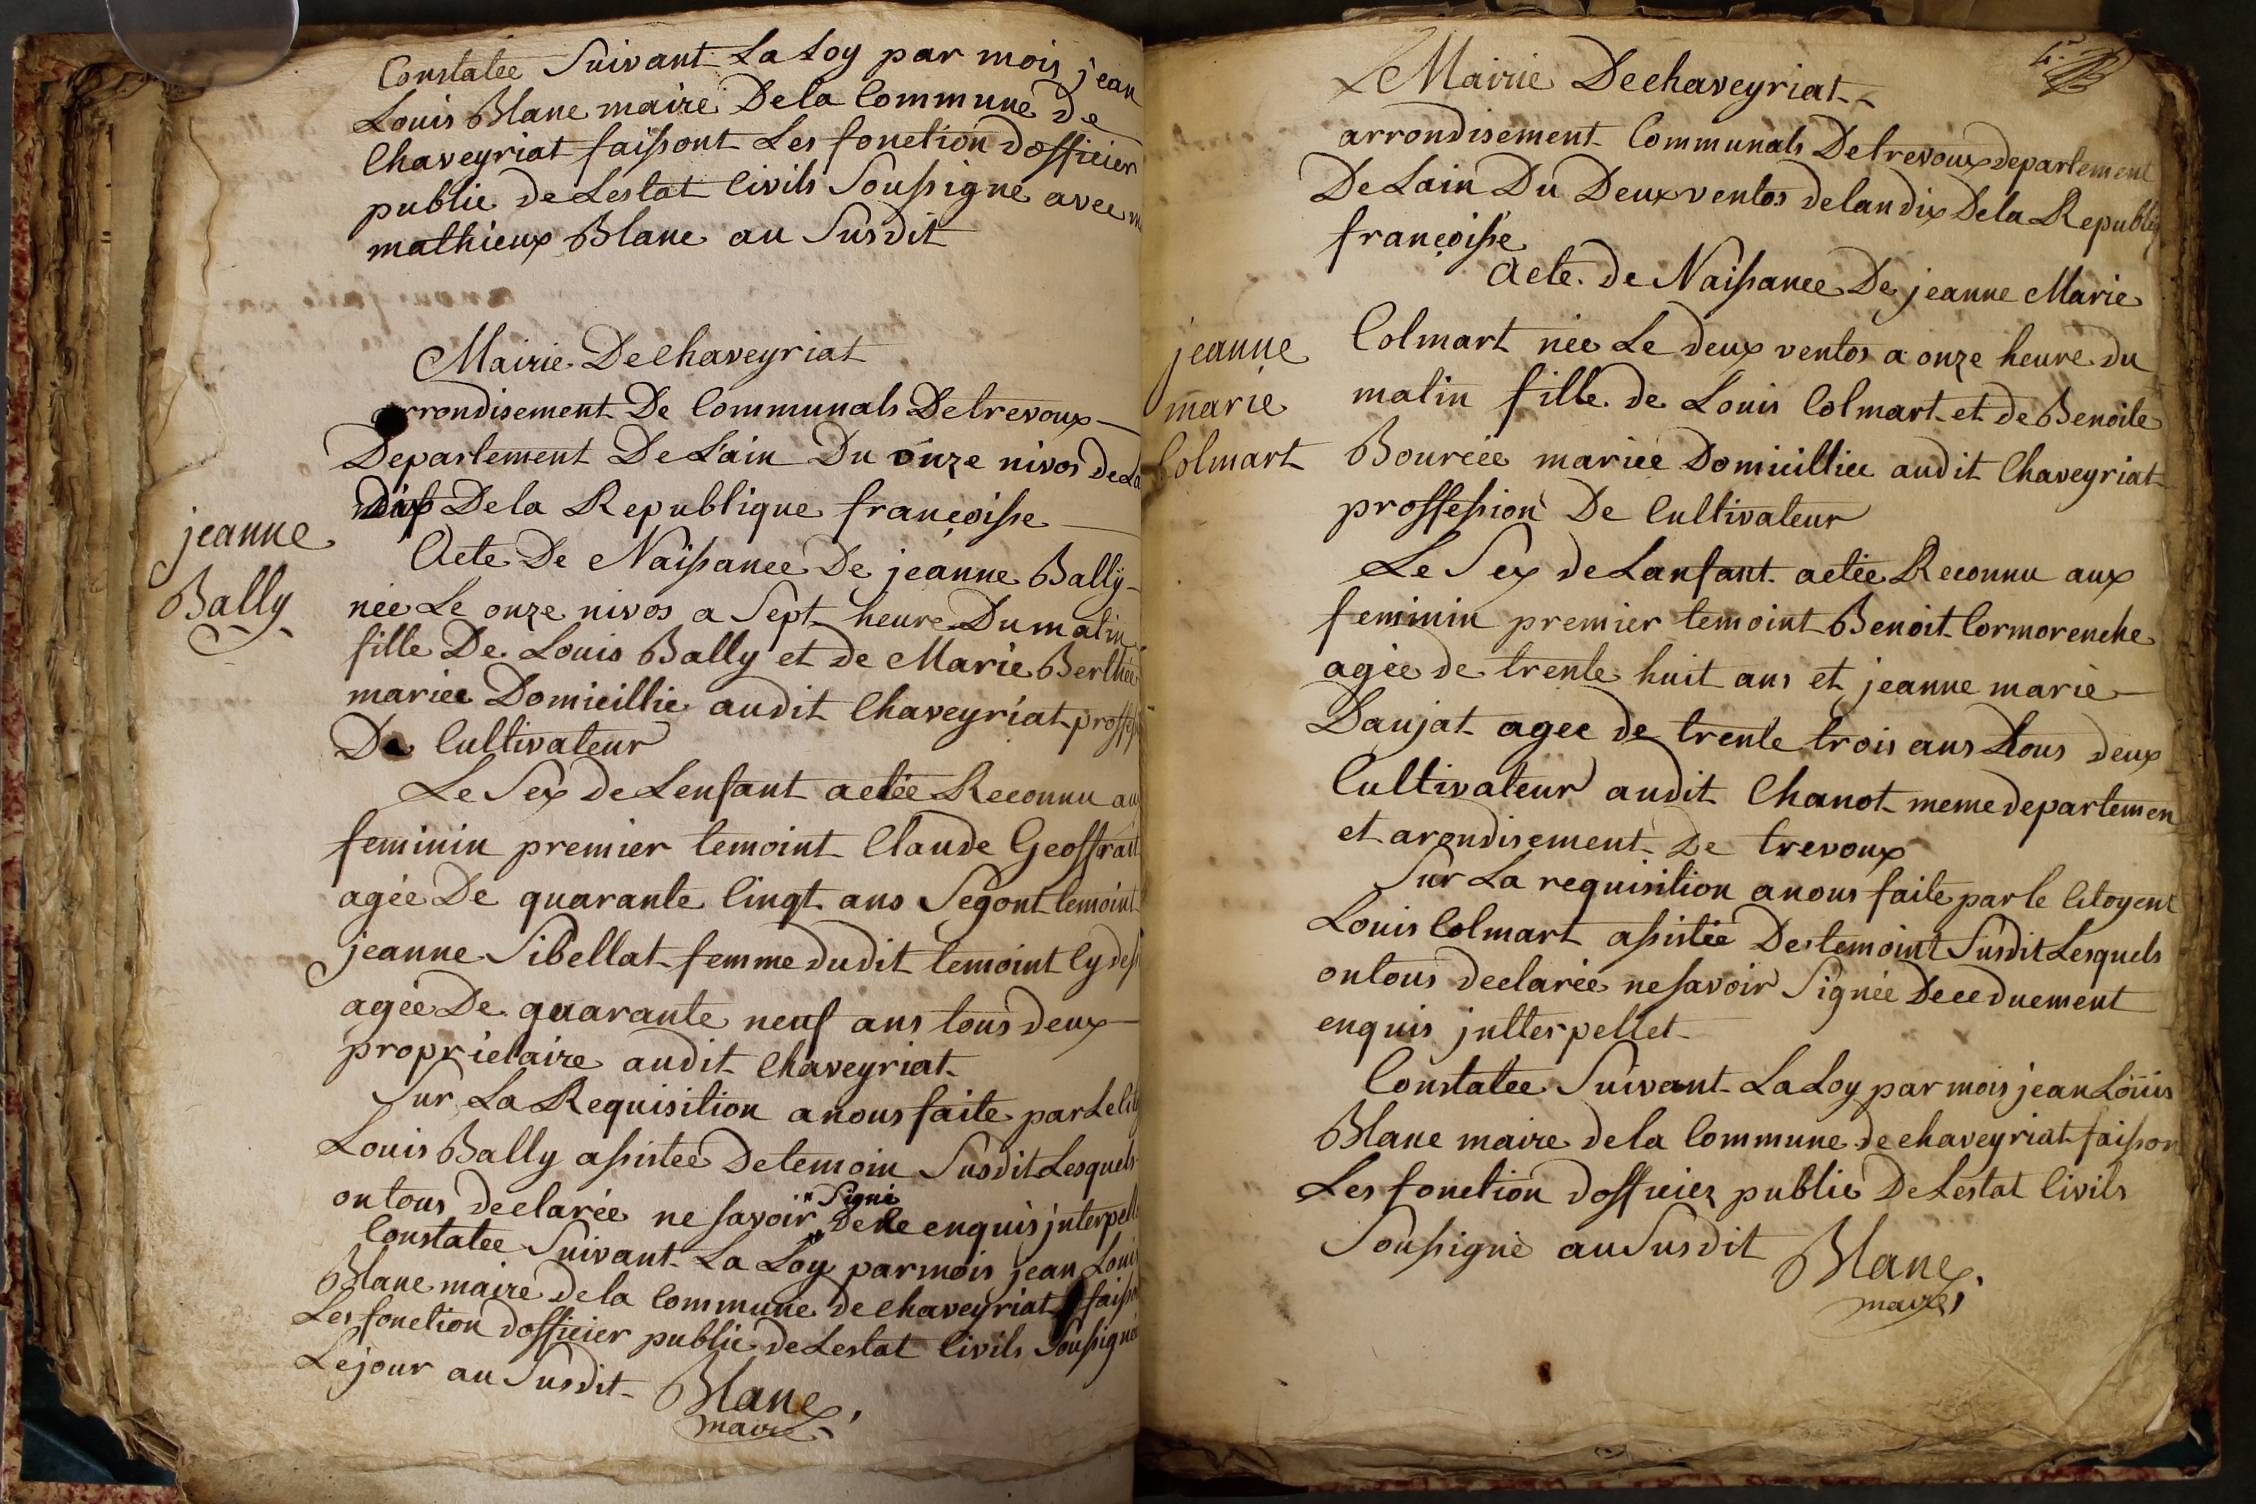 Constatée Suivant La Loy par mois jean
Louis Blanc maire Dela Commune De
Chaveyriat faissont Les fonction dofficier
public de Lestat Civils Soussigné avec
mathieux Blanc au Susdit
Mairie Dechaveyriat
arrondisement De Communals Detrevoux
Departement De Lain Du onze nivos De La
Dix Dela Republique françoisse
jeanne
Bally
Acte De Naissance De jeanne Bally
née Le onze nivos a Sept heure Du matin
fille De Louis Bally et de Marie Berthée
mariée Domicillie audit Chaveyriat proffess
De Cultivateur
Le Sex De Lenfant actée Reconnu au
feminin premier temoint Claude Geoffrait
agée De quarante Cinqt ans Segont temoint
jeanne Sibellat femme dudit temoint Cy dess
agée De quarante neuf ans tous deux
proprietaire audit Chaveyriat
Sur La Requisition a nous faite par Le Cit
Louis Bally assistée De temoin Susdit Lesquels
on tous declarée ne savoir Signé De ce enquis jnterpell
Constatée Suivant La Loy par mois jean Louis
Blanc maire dela Commune de chaveyriat faisson
Les fonction dofficier public de Lestat Civils Soussigné
Le jour au Susdit
Blanc
maire
Le Mairie Dechaveyriat
arrondisement Communals Detrevoux departement
De Lain Du Deux ventos delan dix Dela Republiq
françoisse
Acte de Naissance De jeanne Marie
jeanne
marie
Colmart
Colmart née Le deux ventos a onze heure du
matin fille de Louis Colmart et de Benoite
Bourcée mariée Domicilliee audit Chaveyriat
proffession De Cultivateur
Le Sex de Lanfant actée Reconnu aux
feminin premier temoint Benoit Cormorenche
agée de trente huit ans et jeanne marie
Daujat agee de trente trois ans tous deux
Cultivateur audit Chanot meme departemen
et arondisement De trevoux
Sur La requisition a nous faite par le Citoyent
Louis Colmart assistée Des temoint Susdit Lesquels
on tous declarée ne savoir Signée De ce duement
enquis jnterpellet
Constatee Suivant La Loy par mois jean Loüis
Blanc maire dela Commune de chaveyriat faisson
Les fonction dofficier public De Lestat Civils
Soussigné au Susdit
Blanc
maire